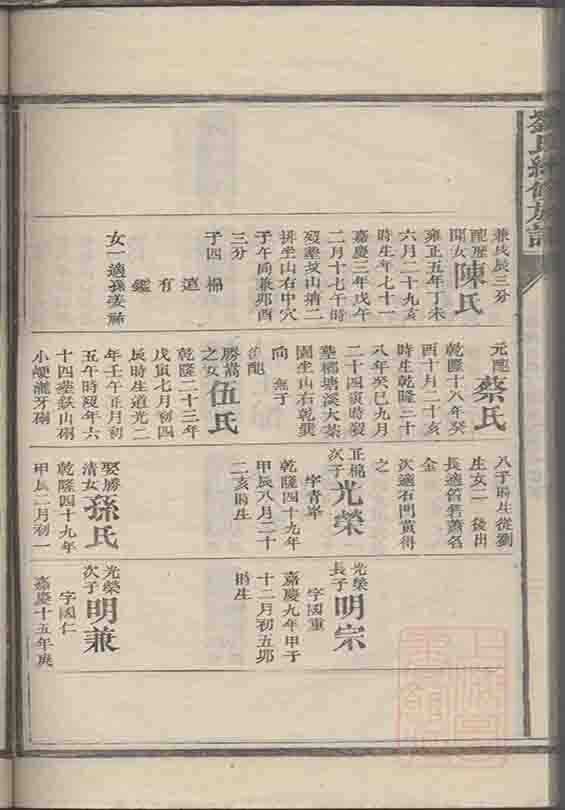 劉氏續修族譜
兼戌辰三分
配歷
開女
陳氏
雍正五年丁未
六月二十九亥
時生年七十一
嘉慶三年戊午
二月十七午時
歿葬坟山靖二
排坐山右中穴
子午向兼卯酉
三分
子四 榻
遠
有
鑑
女一適孫
元配
蔡氏
乾隆十八年癸
酉十月二十亥
時生乾隆三十
八年癸巳九月
二十四寅時歿
葬榔塘溪大茶
園坐山右乾巽
向 無子
配
勝嵩
之女
伍氏
乾隆二十三年
戊寅七月初四
辰時生道光二
年壬午正月初
五午時歿年六
十四葬欽山硼
小硬瀧牙硼
八子時生從劉
生女二 後出
長適管箬蕭名
金
次適石門黃得
之
正榻
次子
光榮
字青峯
乾隆四十九年
甲辰八月二十
二亥時生
娶勝
清女
孫氏
乾隆四十九年
甲辰二月初一
光榮
長子
明宗
字國重
嘉慶九年甲子
十二月初五卯
時生
光榮
次子
明兼
字國仁
嘉慶十五年庚